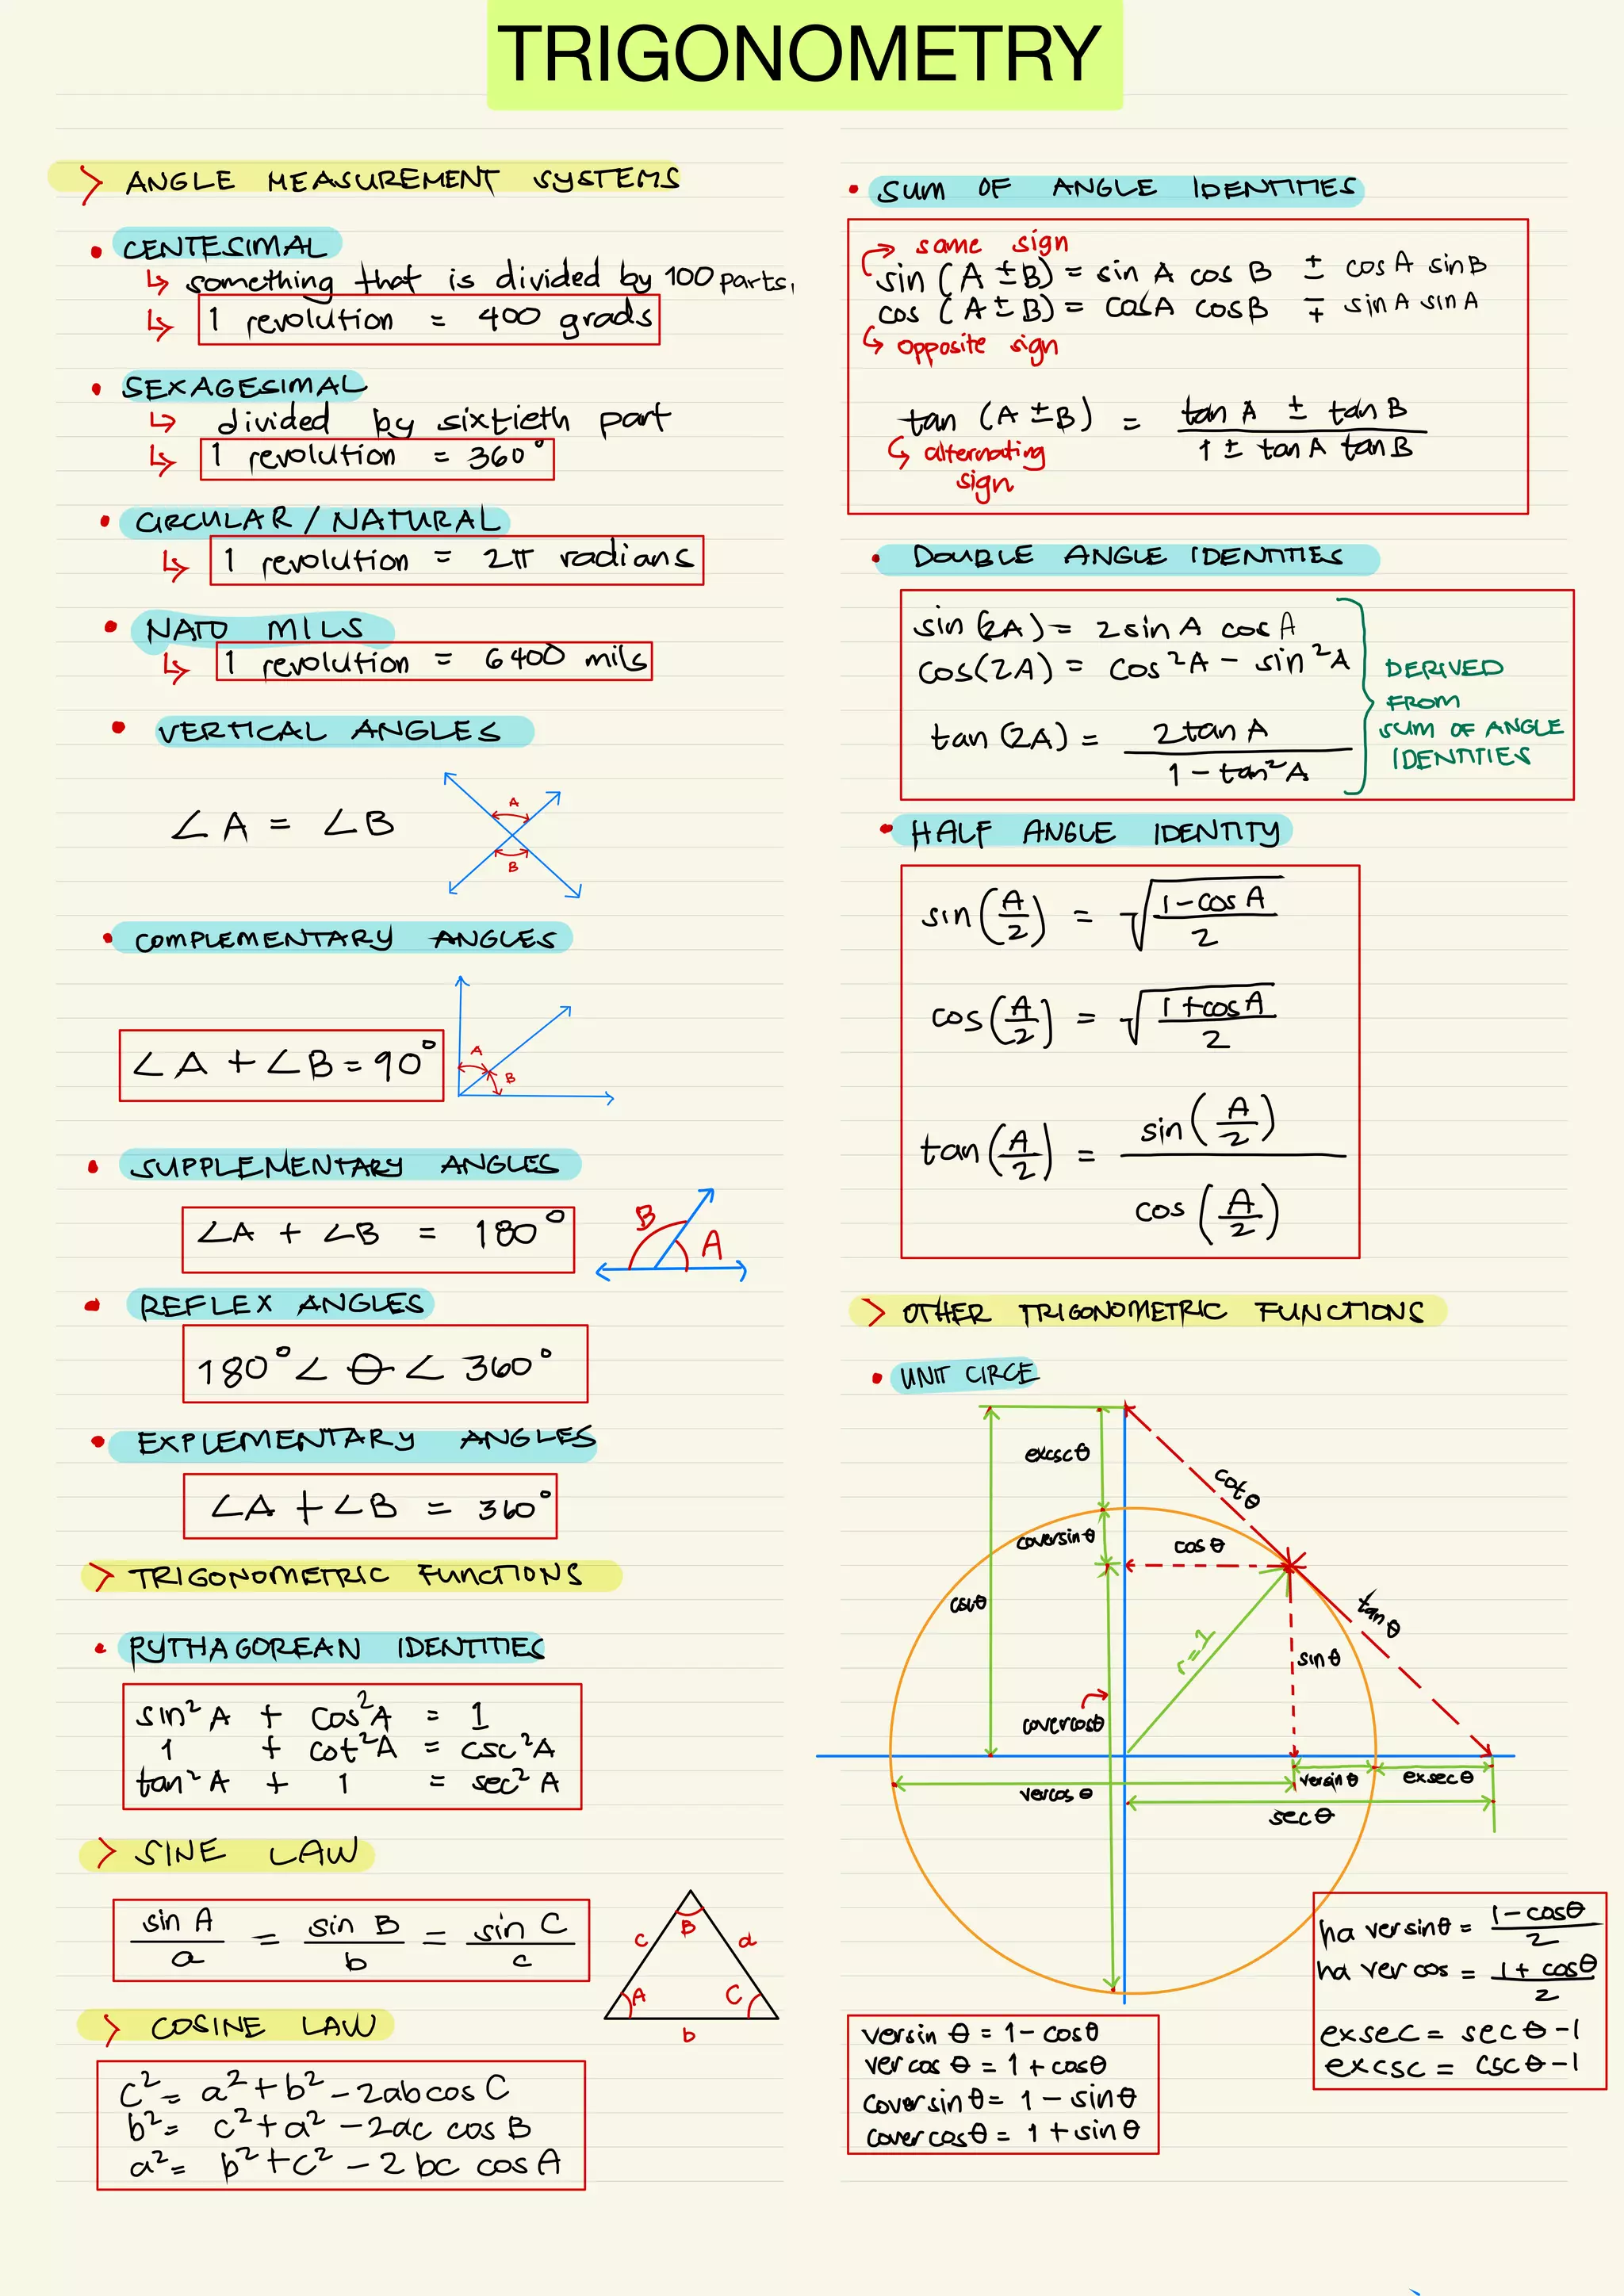 TRIGONOMETRY
> ANGLE MEASUREMENT SYSTEMS
• CENTESIMAL
↳ something that is divided by 100 parts.
↳ 1 revolution = 400 grads
• SEXAGESIMAL
↳ divided by sixtieth part
↳ 1 revolution = 360°
• CIRCULAR / NATURAL
↳ 1 revolution = 2π radians
• NATO MILS
↳ 1 revolution = 6400 mils
• VERTICAL ANGLES
∠A = ∠B
A
B
• COMPLEMENTARY ANGLES
∠A + ∠B = 90°
A
B
• SUPPLEMENTARY ANGLES
∠A + ∠B = 180°
B
A
• REFLEX ANGLES
180° < θ < 360°
• EXPLEMENTARY ANGLES
∠A + ∠B = 360°
> TRIGONOMETRIC FUNCTIONS
• PYTHAGOREAN IDENTITIES
sin² A + cos² A = 1
1 + cot² A = csc² A
tan² A + 1 = sec² A
> SINE LAW
sin A / a = sin B / b = sin C / c
B
c
a
A
C
b
> COSINE LAW
c² = a² + b² - 2ab cos C
b² = c² + a² - 2ac cos B
a² = b² + c² - 2bc cos A
• SUM OF ANGLE IDENTITIES
same sign
sin (A ± B) = sin A cos B ± cos A sin B
cos (A ± B) = cos A cos B ∓ sin A sin A
opposite sign
tan (A ± B) = tan A ± tan B / 1 ± tan A tan B
alternating
sign
• DOUBLE ANGLE IDENTITIES
sin (2A) = 2 sin A cos A
cos (2A) = cos² A - sin² A
tan (2A) = 2 tan A / 1 - tan² A
DERIVED
FROM
SUM OF ANGLE
IDENTITIES
• HALF ANGLE IDENTITY
sin (A/2) = √(1 - cos A / 2)
cos (A/2) = √(1 + cos A / 2)
tan (A/2) = sin (A/2) / cos (A/2)
> OTHER TRIGONOMETRIC FUNCTIONS
• UNIT CIRCE
excsc θ
cot θ
coversin θ
cos θ
csc θ
tan θ
r=1
sin θ
covercosθ
versin θ
exsec θ
vercos θ
sec θ
ha versin θ = 1 - cosθ / 2
ha ver cos = 1 + cosθ / 2
exsec = sec θ - 1
excsc = csc θ - 1
versin θ = 1 - cosθ
vercos θ = 1 + cosθ
coversin θ = 1 - sin θ
covercos θ = 1 + sin θ